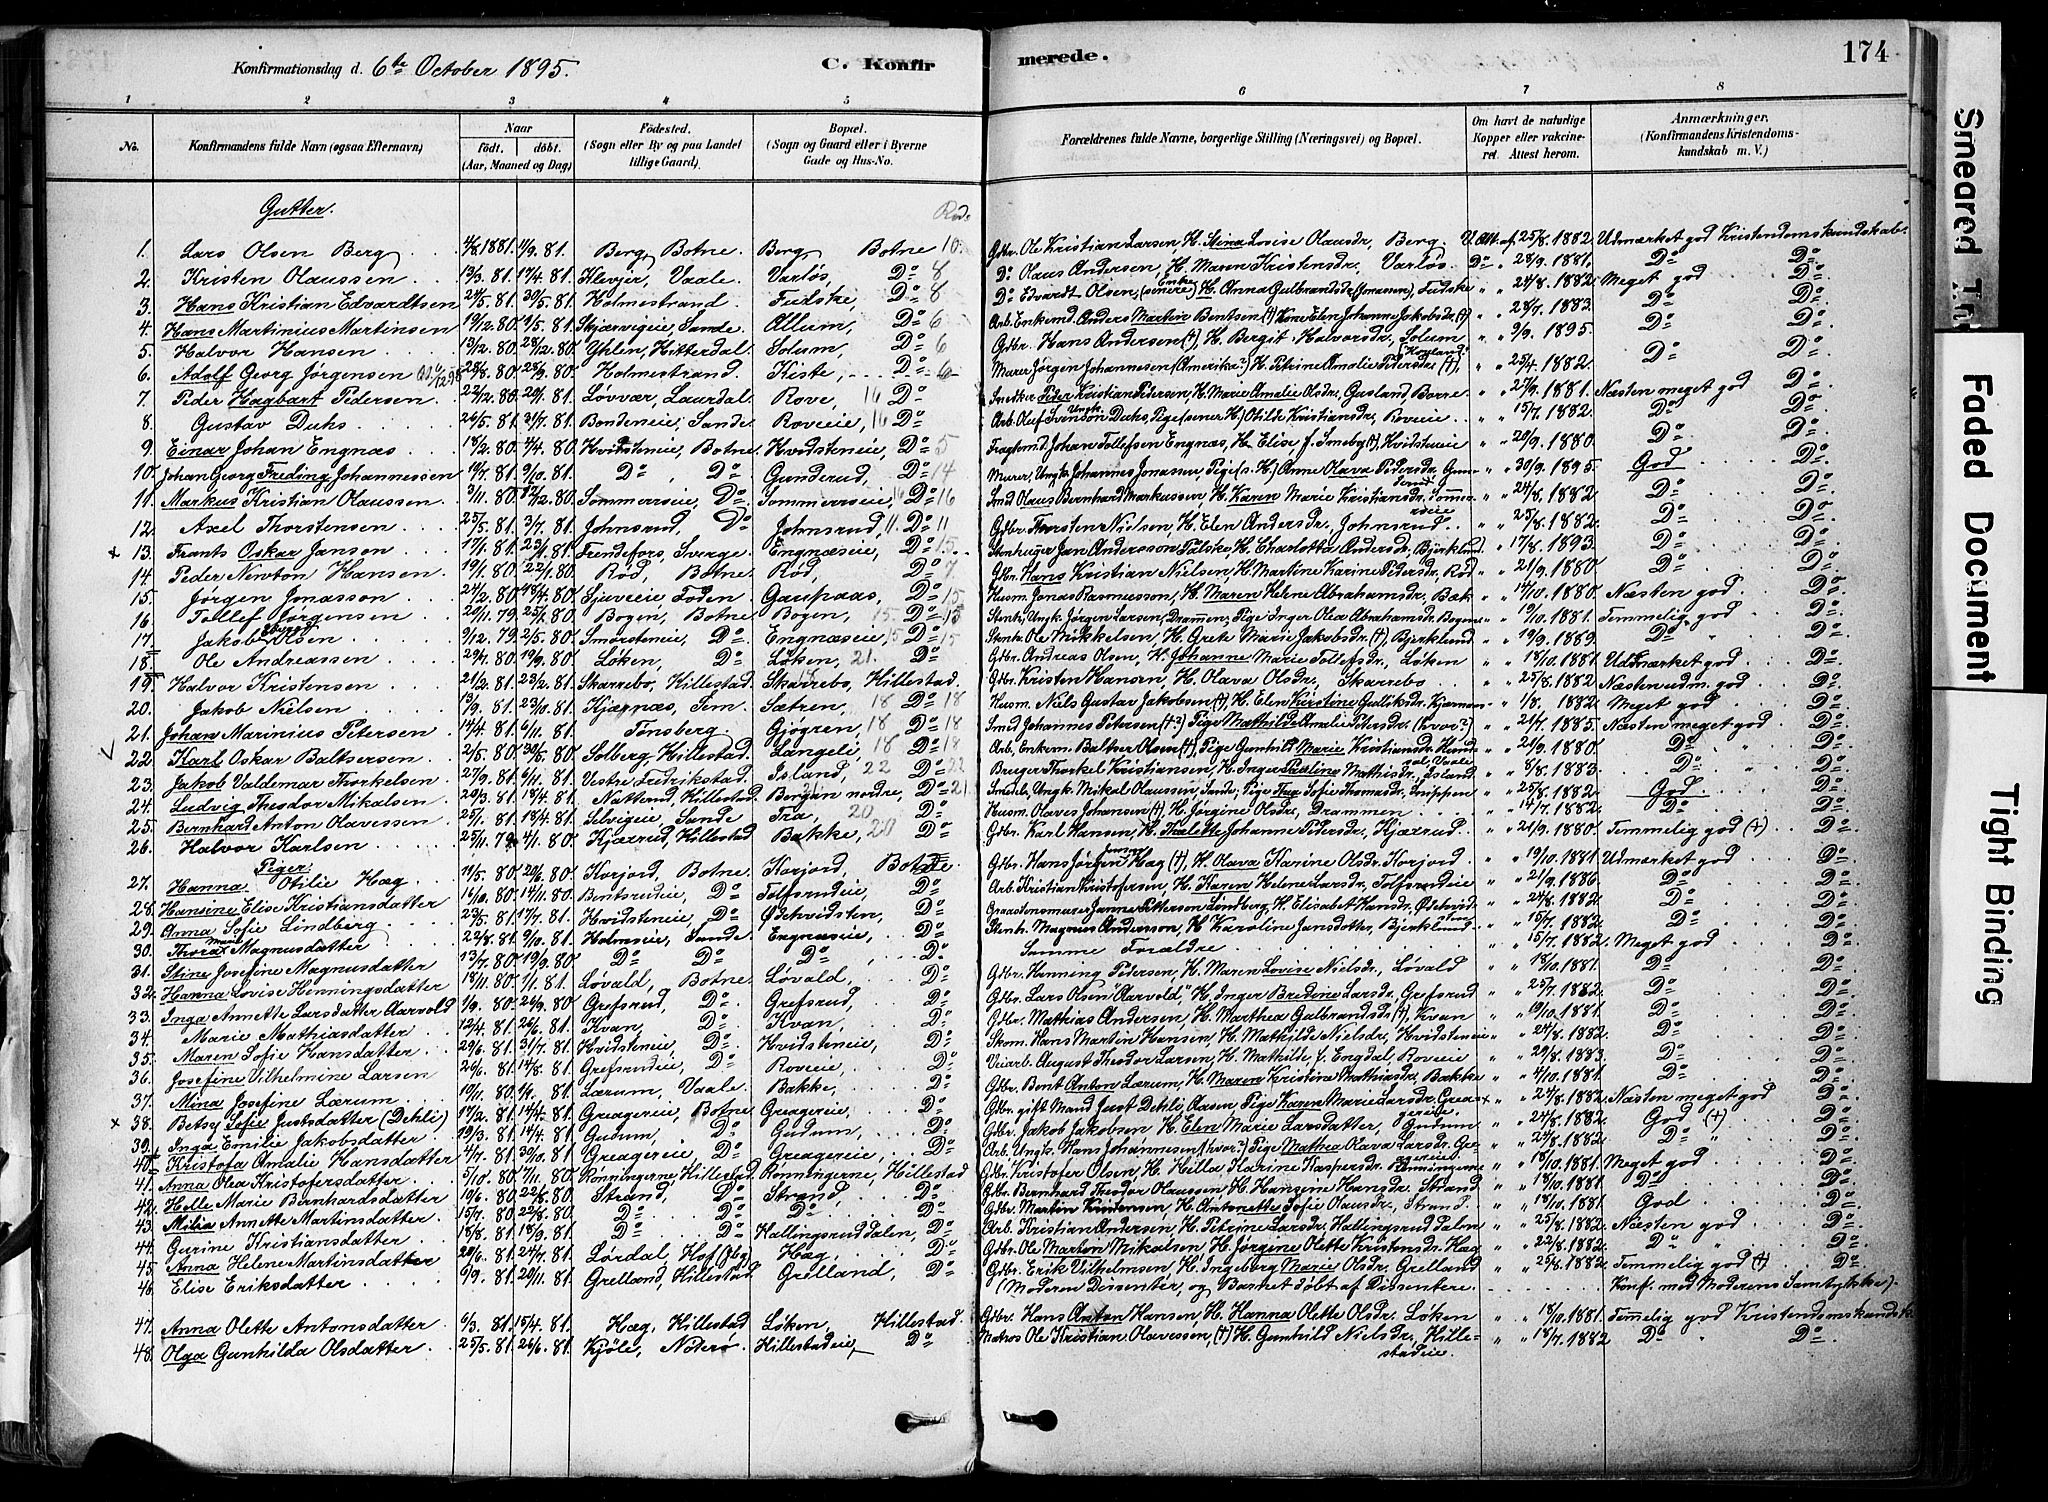 Konfirmationsdag d. 6te October 1895.
C. Konfirmerede.
174
1 2 3 4 5 6 7 8
No.
Konfirmandens fulde Navn (ogsaa Efternavn)
Naar
födt. döbt.
(Aar, Maaned og Dag)
Födested.
(Sogn eller By og paa Landet
tillige Gaard).
Bopæl.
(Sogn og Gaard eller i Byerne
Gade og Hus-No.
Forældrenes fulde Navne, borgerlige Stilling (Næringsvei) og Bopæl.
Om havt de naturlige
Kopper eller vakcine-
ret. Attest herom.
Anmærkninger.
(Konfirmandens Kristendoms-
kundskab m. V.)
Gutter.
1. Lars Olsen Berg 4/8 1881. 11/9. 81. Berg, Botne Berg, Botne 10. Gdbr. Ole Kristian Larsen H. Stina Lovise Olausdr, Berg. V. Att. af 25/8. 1882. Udmærket god Kristendomskundskab.
2. Kristen Olaussen 13/3. 81. 17/4. 81. Klevjer, Vaale. Varløs, Do 8 Do Olaus Andersen, H. Maren Kristensdr, Varløs. Do " 28/9. 1881. Do Do
3. Hans Kristian Edvardtsen 24/5. 81. 30/5. 81. Holmestrand. Fudske, Do 8 Do Edvardt Olsen, (senere Enke) H. Anna Gulbrandsdr (Jonassen), Fudske " " 24/8. 1882. Meget god Do
4. Hans Martinius Martinsen 19/12. 80. 1/5. 81. Skjærvigeie, Sande. Ollum, Do 6 Arb. Enkemd. Anders Martin Bentsen (†) Kone Elen Johanne Jakobsdr (†) " " 28/7. 1883. Do Do
5. Halvor Hansen 13/12. 80. 28/12. 80. Yhlen, Hitterdal. Solum, Do 6 Gdbr. Hans Andersen (†) H. Bergit Halvorsdr, Solum " " 9/9. 1895. Do Do
6. Adolf Georg Jørgensen 28/8. 80. 28/9. 80. Holmestrand. Kiste, 6 Murer Jörgen Johannesen (Amerika?) H. Petrine Amalie Pedersdr (†), " " 25/4. 1882. Do Do
7. Peder Hagbart Pedersen 22/12. 80. 20/1. 81. Løvvær, Laurdal. Rove, 16 Do Snedker Peder Kristian Pedersen, H. Maren Amalie Olsdr, Gusland Borre " " 27/9. 1881. Næsten meget god Do
8. Gustav Duhs 26/5. 81. 31/7. 81. Bondeneie, Sande. Roveie, 16 Do Arb. Oluf Svendsen Duhs, Pige (senere H.) Otilde Kristiansdr, Roveie " " 15/7. 1882. Do Do
9. Einar Johan Engnæs 18/2. 80. 4/4. 80. Hvidsteneie, Botne. Hvidsteneie, Do 5 Johan Tollefsen Engnæs, H. Elise f. Smeby (†), Hvidsteneie " " 20/9. 1880. Do Do
10. Johan Georg Freding Johannessen 19/7. 81. 9/10. 81. Do, Do Gunderud, Do 14 Murer, Ungk. Johannes Jonassen, Pige (s. H.) Anne Olava Pedersdr, Gunderud " " 30/9. 1895. God Do
11. Markus Kristian Olaussen 3/11. 80. 12/12. 80. Sommerseie, Do Sommerseie, 16 Do 16 Smd. Olaus Bernhard Markussen, H. Karen Marie Kristiansdr, Sommerseie " " 24/8. 1882. Do Do
12. Axel Thorstensen 25/5. 81. 3/7. 81. Johnsrud, Do Johnsrud, 11. Do 11 Gdbr. Thorsten Nielsen, H. Elen Andersdr, Johnsrud. " " 25/8. 1882. Do Do
x 13. Frants Oskar Jansen 17/1. 81. 23/1. 81. Frendefors, Sverge. Engnæseie, Do 15 Stenhugger Jan Andersson Falske, H. Charlotta Andersdr, Bjerklund " " 17/8. 1893. Do Do
14. Peder Newton Hansen 19/1. 80. 22/2. 80. Rød, Botne. Rød, Do 7 Gdbr. Hans Kristian Nielsen, H. Martine Karine Pedersdr, Rød " " 21/9. 1880 Do Do
15. Jørgen Jonassen 24/2. 80. 18/4. 80. Sjuveeie Foden Gaupaas, Do 15 Husm. Jonas Rasmussen, H. Maren Helene Abrahamsdr, Bæk " " 14/10. 1880. Næsten god Do
16. Tollef Jørgensen 20/11. 79. 25/2. 80. Bogen, Botne Bogen, 15. Do 15 Stenh. Ungk. Jörgen Larsen, Drammen; Pige Inger Olea Abrahamsdr, Bogen " " 19/10. 1881. Temmelig god Do
17. Jakob Olsen 9/12. 79. 2/5. 80. Smörsteneie, Do Engnæseie, 15 Do 15 Stenh. Ole Mikkelsen, H. Grete Marie Jakobsdr (†), Bjerklund " " 19/9. 1889. Do " Do
18. Ole Andreassen 29/7. 80. 19/9. 80. Løken, Do Løken, 21. Do Gdbr. Andreas Olsen, H. Johanne Marie Tollefsdr, Løken " " 18/10. 1881. Udmærket god Do
19. Halvor Kristensen 21/2. 81. 23/2. 81. Skarrebo, Hillestad. Skarrebo, Hillestad. Gdbr. Kristen Hansen, H. Olava Olsdr, Skarrebo " " 25/8. 1882. Næsten udm. god Do
20. Jakob Nielsen 13/9. 81. 23/10. 81. Kjæpnæs, Sem. Sætren, 18 Do 18 Husm. Niels Gustav Jakobsen (†), H. Elen Kirstine Gulliksdr, " " 1/8. 1882. Meget god Do
21. Johan Marinius Petersen 14/4. 81. 6/11. 81. Tønsberg Gjøgren, 18 Do 18 Smed Johannes Petersen (†?) Pige Mathilde Amalie Petersdr. (hvor?) " " 21/7. 1885. Næsten meget god Do
22. Karl Oskar Baltsersen 2/5. 80. 30/5. 80. Solberg, Hillestad. Langeli, 18 Do 18 Arb. Enkem. Baltser Olsen (†), Pige Gunhild Marie Kristiansdr, Vaale " " 21/9. 1880. Do " Do
23. Jakob Valdemar Thorkelsen 27/9. 81. 6/11. 81. Vestre Fredrikstad. Island, 22 Do 22 Brueger Thorkel Kristiansen, H. Inger Pauline Mathisdr, Island " " 8/8. 1883. Do " Do
24. Ludvig Theodor Mikalsen 20/3. 81. 18/4. 81. Nattrud, Hillestad. Bergan nordre, Do 21. Ungk. Mikal Olaussen, Sande; Pige Thea Sofie Thomasdr, Snippen " " 25/8. 1882. God Do
25. Bernhard Anton Olavessen 25/1. 81. 18/4. 81. Selvigeie, Sande Fra, 20 Do Husm. Olaves Johansen (†) H. Jörgine Olsdr, Drammen " " 14/7. 1882. Do Do
26. Halvor Karlsen 25/11. 79. 4/1. 80. Kjærrud, Hillestad Bakke, 20 Do Gdbr. Karl Hansen, H. Thalette Johanne Pedersdr, Kjærrud " " 21/9. 1880. Temmelig god (†) Do
Piger.
27. Hanna Otilie Hæg 19/5. 80. 20/6. 80. Korjord, Botne. Korjord, Botne. Gdbr. Hans Jörgen Jensen Hæg (†), H. Olava Karine Olsdr, Korjord " " 19/10. 1881. Udmærket god Do
28. Hansine Elise Kristiansdatter 16/10. 80. 14/11. 80. Bentsrudeie, Do Tolfsrudeie, Do Arb. Kristian Kristofersen, H. Karen Helene Larsdr, Tolfsrudeie " " 21/9. 1886. Do Do
29. Anna Sofie Lindberg 22/5. 81. 17/7. 81. Hvidsteneie, Do Ødehvidsten, Do Graastensmurer Janne Petterson Lindberg, H. Elisabet Hansdr, Ødehvidsten " " 24/8. 1882. Do Do
30. Thora Marie Magnusdatter 22/8. 81. 9/10. 81. Holmseie, Sande. Engnæseie, Do Stenh. Magnus Anderson, H. Karoline Jansdatter, Bjerklund " " 15/7. 1882. Do Do
31. Stine Josefine Magnusdatter 13/7. 80. 19/9. 80. Do Do Do. Do. Samme Forældre " " 15/7. 1882. Meget god Do
32. Hanna Lovise Henningsdatter 18/11. 80. 1/1. 81. Løvald, Botne. Løvald, Do Gdbr. Henning Pedersen, H. Maren Lovise Nielsdr, Løvald " " 18/10. 1881. Do Do
33. Inga Annette Larsdatter Aarvold 1/9. 80. 26/9. 80. Grefsrud, Do Grefsrud, Do Gdbr. Lars Olsen "Aarvold", H. Inger Bredine Larsdr, Grefsrud " " 25/7. 1882. Do Do
34. Marie Mathiasdatter 12/4. 81. 26/6. 81. Kvan, Do Kvan, Do Gdbr. Mathias Andersen, H. Marthea Gulbrandsdr (†), Kvan " " 19/10. 1881. Do Do
35. Maren Sofie Hansdatter 29/6. 81. 31/7. 81. Hvidsteneie, Do Hvidsteneie, Do Skom. Hans Martin Hansen, H. Mathilde Nielsdr, Hvidsteneie " " 24/8. 1882. Do Do
36. Josefine Vilhelmine Larsen 26/6. 81. 14/8. 81. Grefsrudeie, Do Roveie, Do Veiarb. August Theodor Larsen, H. Mathilde, f. Engdal, Roveie " " 29/8. 1883. Do Do
37. Mina Josefine Lærum 10/11. 80. 1/1. 81. Lærum, Vaale. Bakke, Do Gdbr. Bent Anton Lærum, H. Maren Kristine Mathiasdr, Bakke " " 4/10. 1881. Do Do
x 38. Betsy Sofie Justsdatter (Dehli) 17/2. 81. 14/4. 81. Greagereie, Botne. Greagereie, Do Gdbr. gift Mand Just Dehli Aasen, Pige Karen Marie Larsdr, Greagereie " " 24/8. 1882. Næsten meget god Do
39. Inga Emilie Jakobsdatter 19/3. 81. 14/4. 81. Gudum, Do Gudum, Do Gdbr. Jakob Jakobsen H. Elen Marie Larsdatter, Gudum " " 24/8. 1882. God (†) Do
40. Kristofa Amalie Hansdatter 4/7. 81. 30/10. 81. Greagereie, Do Greagereie, Do Arb. Ungk. Hans Johannesen (hvor?) Pige Mathea Olava Larsdr, Greagereie " " 24/8. 1882. Do " Do
41. Anna Olea Kristofersdatter 5/10. 80. 7/11. 80. Rønningerne, Hillestad. Rønningerne, Hillestad Gdbr. Kristofer Olsen, H. Hilla Karine Kaspersdr, Rønningerne " " 18/10. 1881. Meget god Do
42. Helle Marie Bernhardsdatter 19/6. 80. 22/8. 80. Strand, Do Strand, Do Gdbr. Bernhard Theodor Olaussen H. Hansine Hansdr, Strand " " 18/10. 1881. Do Do
43. Milia Annette Martinsdatter 15/7. 80. 22/8. 80. Do Do Do, Do Gdbr. Martin H. Antonette Sofie Olausdr, Strand " " 18/10. 1881 God Do
44. Gurine Kristiansdatter 18/8. 81. 18/9. 81. Do Do Hallingsrud Palen, Do Arb. Kristian Andersen, H. Petrine Larsdr, Hallingsrud Palen " " 25/8. 1882. Næsten god Do
45. Anna Helene Martinsdatter 20/6. 81. 24/7. 81. Lørdal, Hof Hæg, Do Gdbr. Ole Marten Mikalsen, H. Jørgine Olette Kristensdr, Hæg " " 22/8. 1882. Do " Do
46. Elise Eriksdatter 9/9. 81. 20/11. 81. Grelland, Hillestad. Grelland, Do Gdbr. Erik Vilhelmsen, H. Ingeborg Marie Olsdr, Grelland " " 25/8. 1882. Temmelig god (†) Do
(Moderen Dissenter, og Barnet døbt af Dissentere. Konf. med Moderens Samtykke)
47. Anna Olette Antonsdatter 6/3. 81. 15/4. 81. Hæg, Hillestad Løken, Hillestad. Gdbr. Hans Anton Hansen, H. Hanna Olette Olsdr, Løken " " 18/10. 1881. Temmelig god Kristendomskundsk.
48. Olga Gunhilda Olsdatter 25/5. 81. 26/6. 81. Kjöle, Nøterø. Hillestadeie, Do Matros Ole Kristian Olavessen, (†) H. Gunhild Nielsdr, Hillestadeie. " " 18/7. 1882 Do " Do
Smeared
Faded Document
Tight Binding